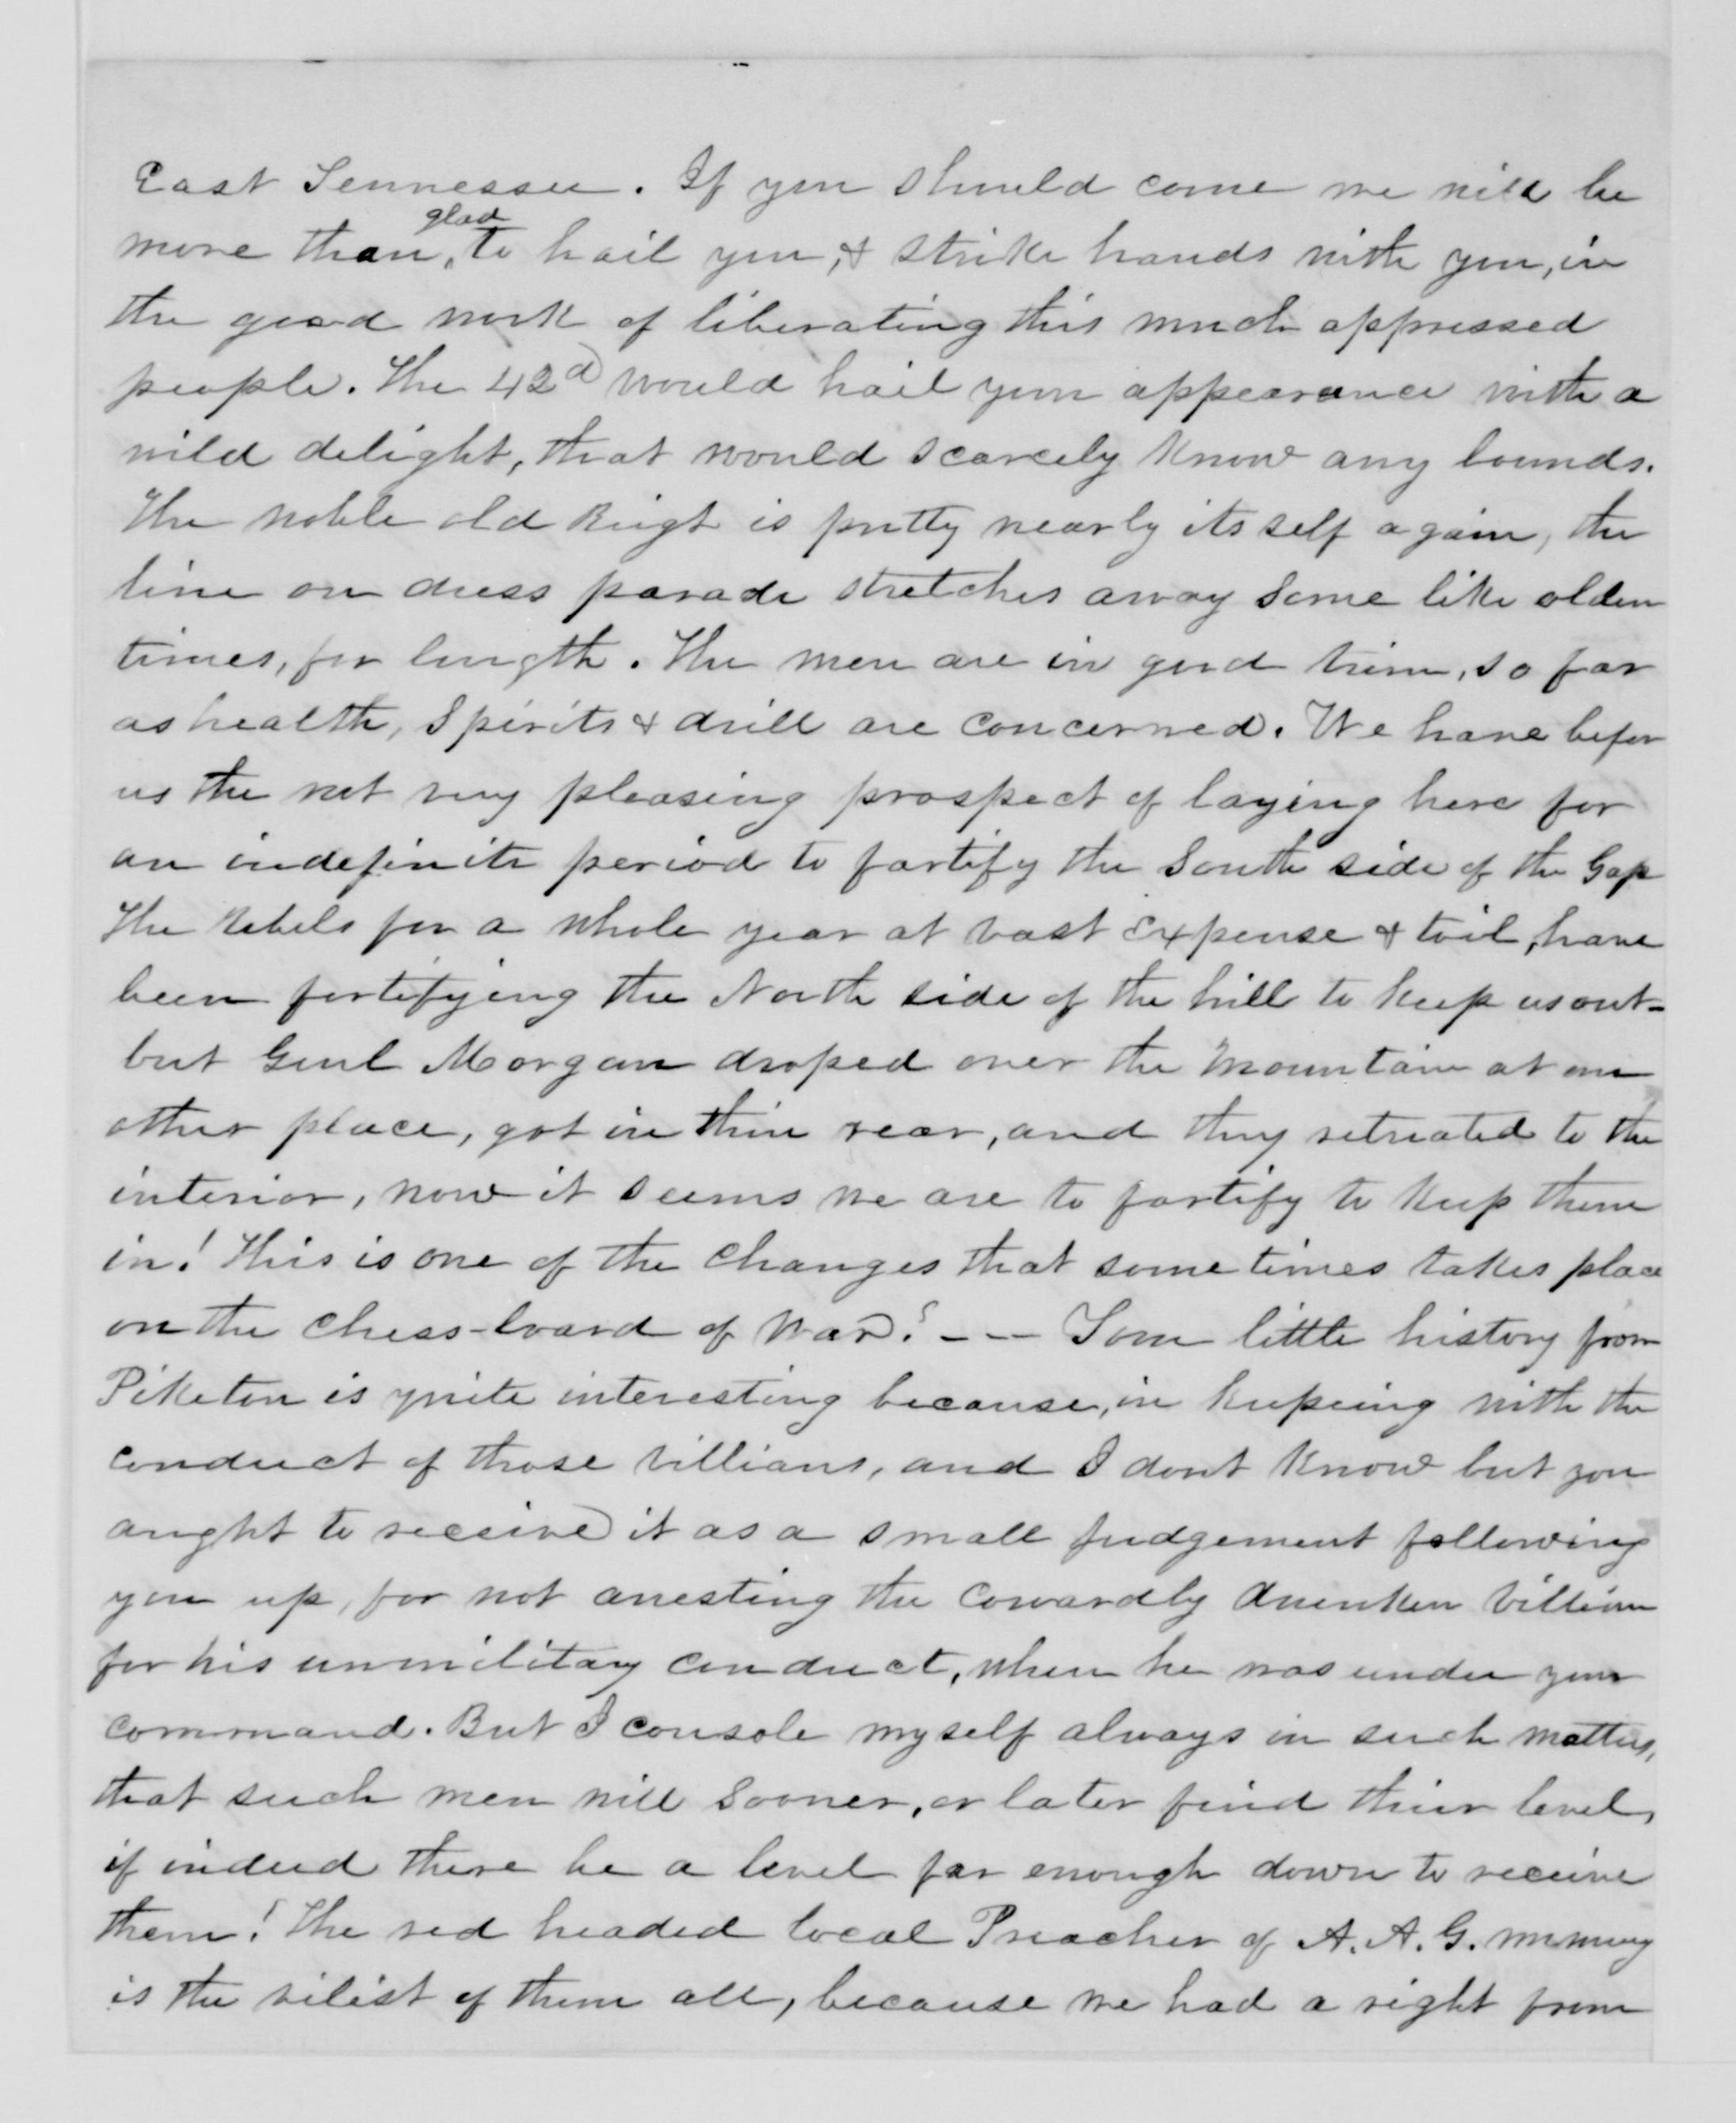 East Tennessee. If you should come we will be
more than glad to hail you, & strike hands with you, in
the good work of liberating this much oppressed
people. The 42d would hail your appearance with a
wild delight, that would scarcely know any bounds.
The noble old Reigt is pretty nearly its self again, the
line on dress parade stretches away some like olden
times, for length. The men are in good trim, so far
as health, Spirits & drill are concerned. We have befor
us the not very pleasing prospect of laying here for
an indefinite period to fortify the South side of the Gap
The Rebels for a whole year at vast expense & toil, have
been fortifying the North side of the hill to keep us out-
but Genl Morgan droped over the Mountain at an
other place, got in thier rear, and they retreated to the
interior, now it seems we are to fortify to keep them
in! This is one of the changes that some times takes place
on the chess-board of War! - - - Your little history from
Piketon is quite interesting because, in keepeing with the
conduct of those villians, and I dont know but you
aught to receive it as a small judgement following
you up, for not arresting the cowardly drunken villian
for his unmilitary conduct, when he was under your
command. But I console myself always in such matters,
that such men will sooner, or later find thier level,
if indeed there be a level far enough down to receive
them! The red headed local Preacher of A. A. G.
is the vilest of them all, because we had a right from